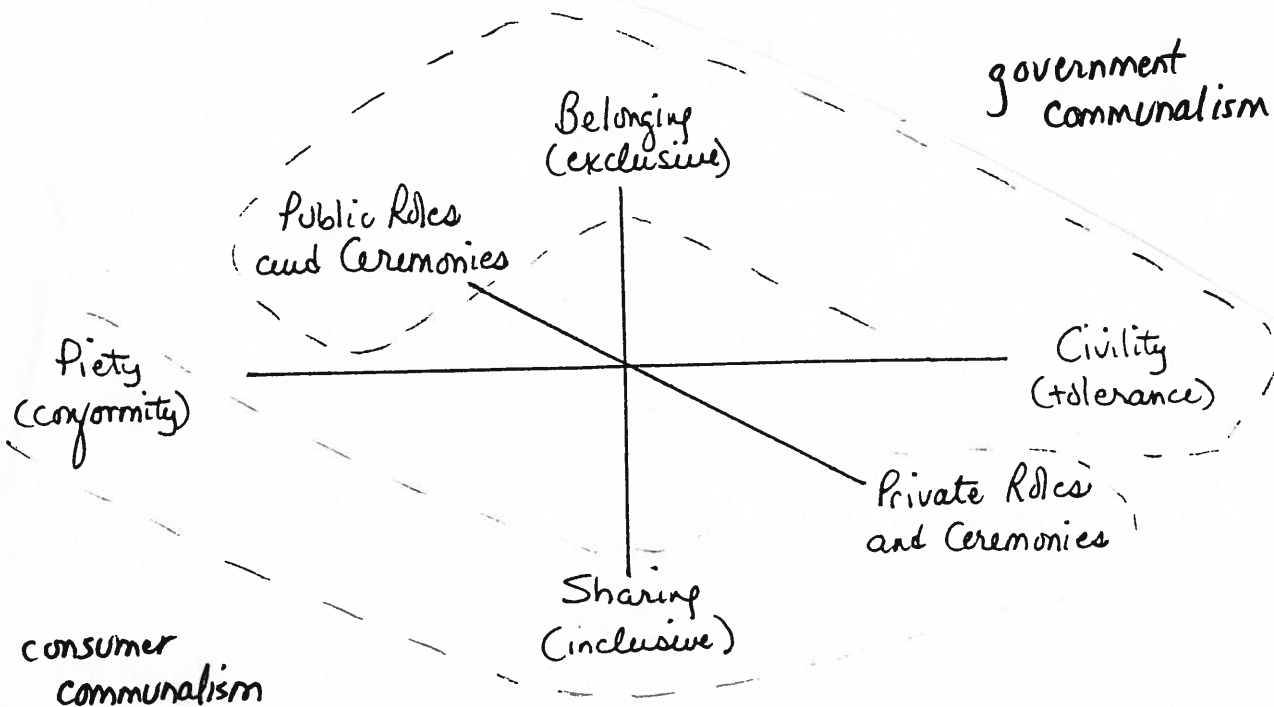 government
communalism
Belonging
(exclusive)
Public Roles
and Ceremonies
Piety
(conformity)
Civility
(tolerance)
Private Roles
and Ceremonies
Sharing
(inclusive)
consumer
communalism